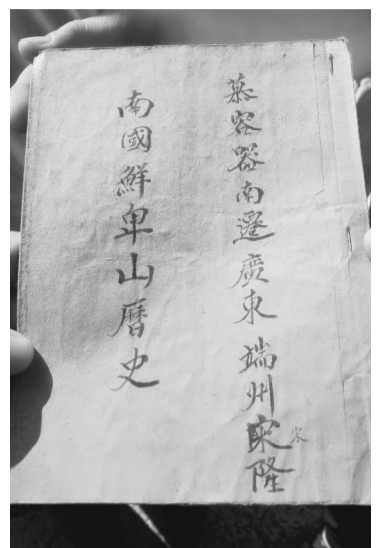 慕容器南遷廣東端州宋隆
宋
南國鮮卑山曆史